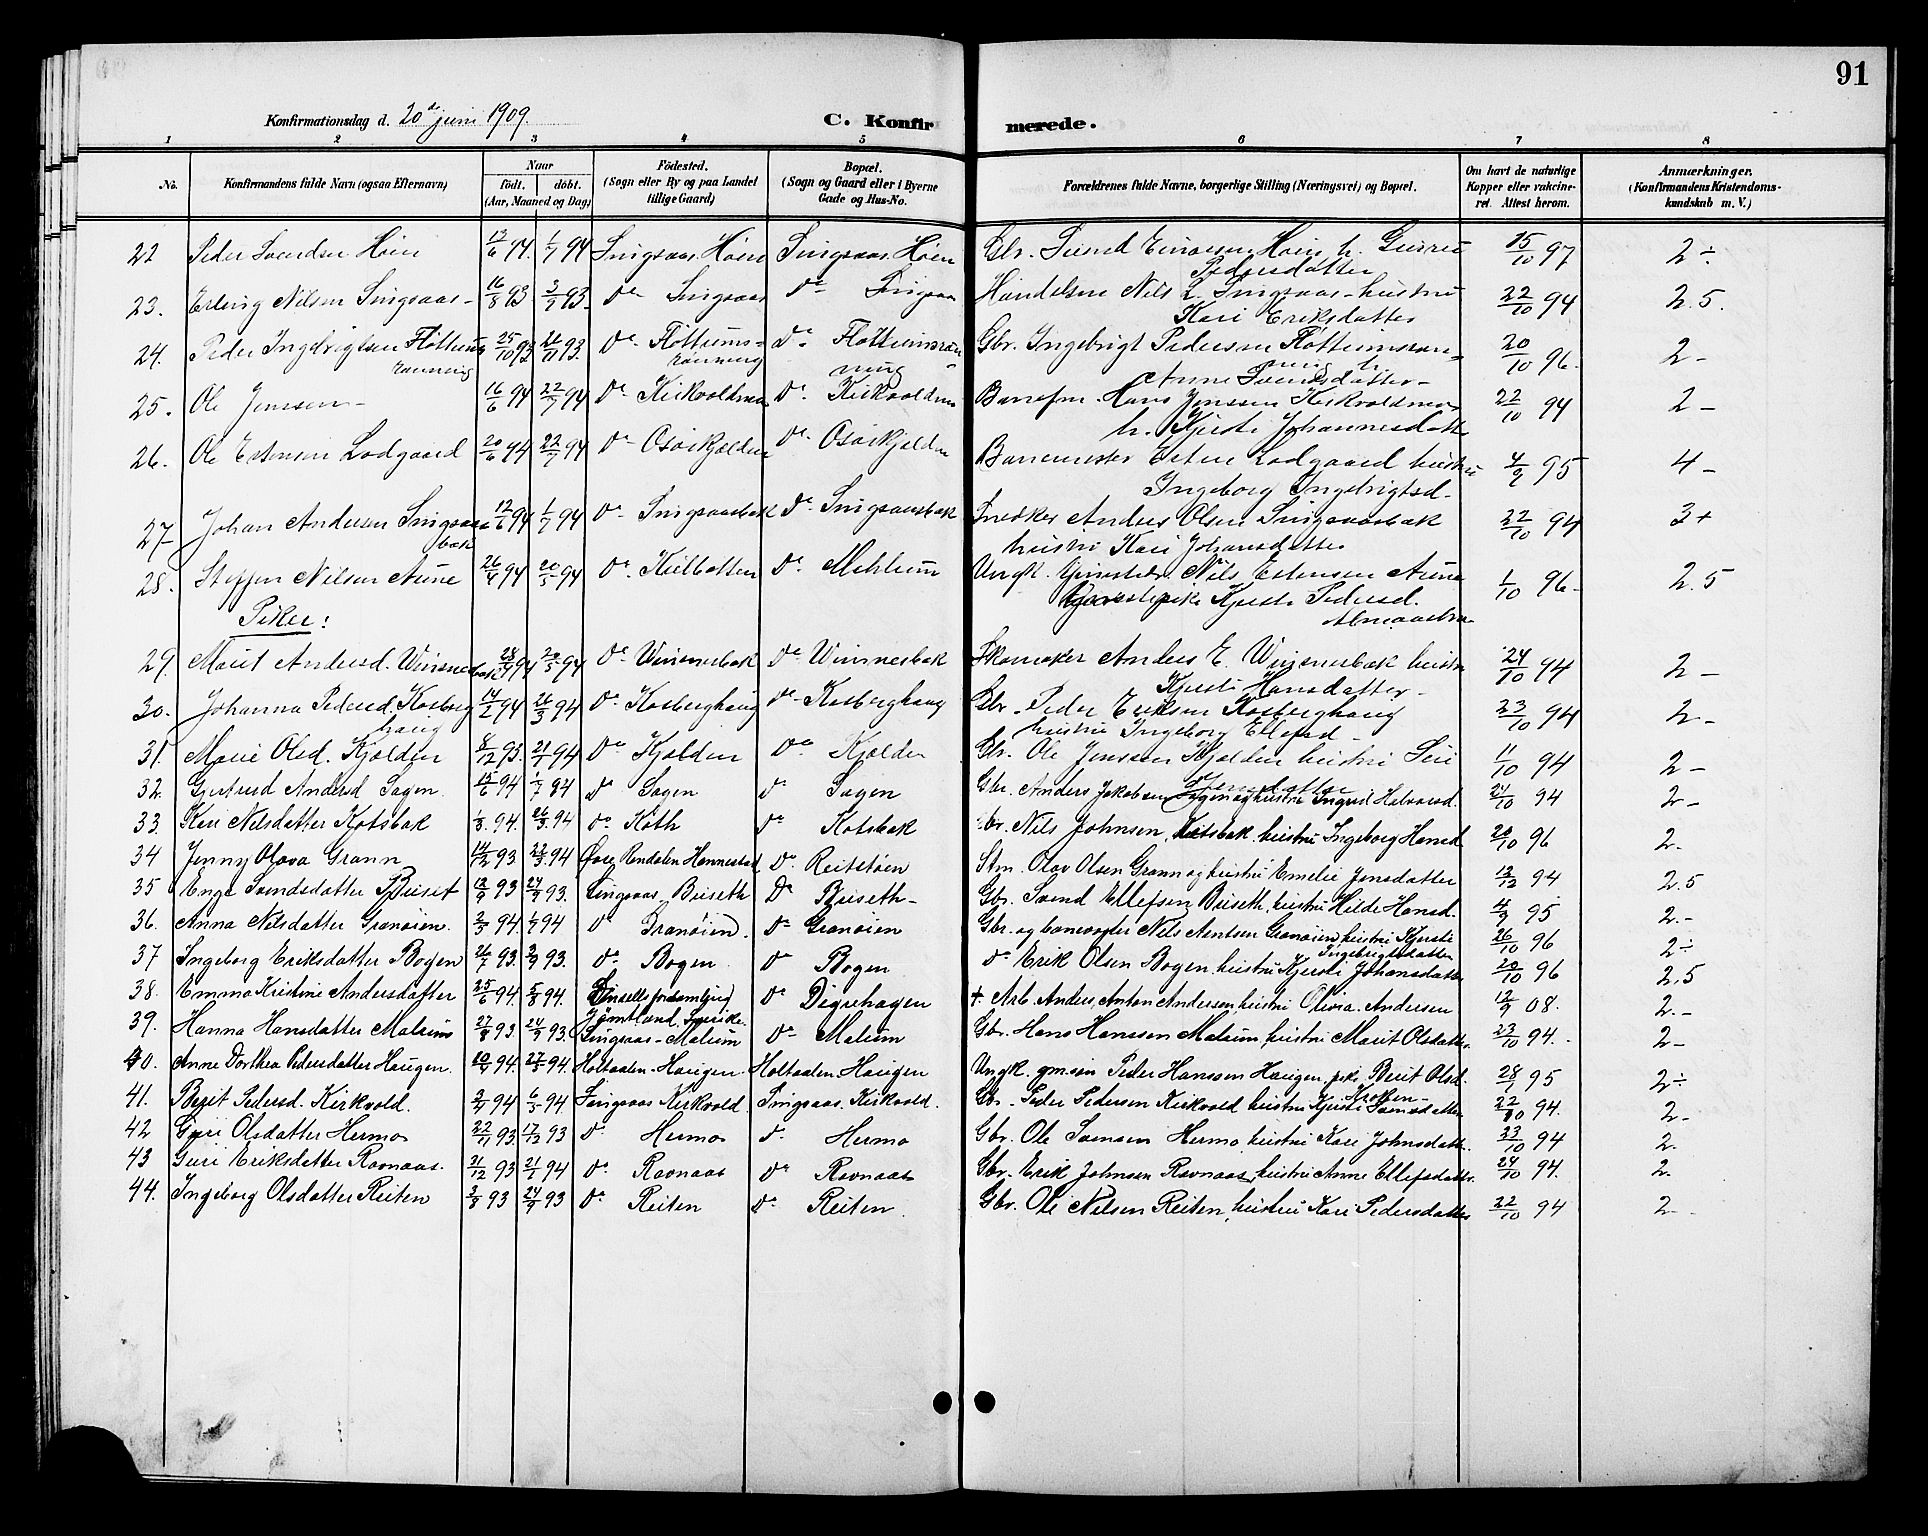 91
Konfirmationsdag d. 20de juni 1909.
C. Konfirmerede.
1 2 3 4 5 6 7 8
No. Konfirmandens fulde Navn (ogsaa Efternavn) Naar født. døbt. (Aar, Maaned og Dag) Födested. (Sogn eller By og paa Landet tillige Gaard) Bopæl. (Sogn og Gaard eller i Byerne Gade og Hus-No. Forældrenes fulde Navne, borgerlige Stilling (Næringsvei) og Bopæl. Om havt de naturlige Kopper eller vakcineret. Attest herom. Anmærkninger. (Konfirmandens Kristendomskundskab m. V.)
22 Peder Svendsen Høien 1/7 94 Singsaas Høien Singsaas Høien Gbr. Svend Høien h. Guru 15/10 97 2÷
Pedersdatter
23. Erling Nilsen Singsaas 16/8 93 3/9 93. do Singsaas do Singsaas Handelsm Nils L. Singsaas hustru 22/10 94 2.5.
Kari Eriksdatter
24. Peder Ingebrigtsen Fløttums 25/10 93 26/11 93. do Fløttums- do Fløttumsrøn Gbr. Ingebrigt Pedersen Fløttumsrøn- 20/10 96. 2-
rønning rønning ning ning h.
Anne Svendsdatter
25. Ole Jensen 16/6 94 22/7 94 do Kirkvoldmoen do Kirkvoldmo Banefm. Hans Jenssen Kirkvoldmoen 22/10 94 2-
h. Kjersti Johannesdatt.
26. Ole Estensen Lodgaard 20/6 94 22/7 94 do Osøikjølden do Osøikjølden Banemester Esten Lodgaard hustru 4/9 95 4-
Ingeborg Ingebrigtsd.
27 Johan Andersen Singsaas 12/6 94 1/7 94 do Singsaasbak do Singsaasbak Snedker Anders Olsen Singsaasbak 22/10 94 3+
bak hustru Kari Johansdatter
28. Steffen Nilsen Aune 26/4 94 20/5 94 do do Mehlum Ungk. Nils Estensen Aune 1/10 96- 2.5
Piker: Kjersti Pedersd.
29. Marit Andersd. Winsnes 28/4 94 20/5 94 do Winsnesbak do Winsnesbak Skomaker Anders E. Winsnesbak hustru 24/10 94 2-
bak Kjersti Hansdatter
30. Johanna Pedersd. Kosberg 14/2 94 26/3 94 do Kosberghaug do Kosberghaug Gbr. Peder Eriksen Kosberghaug 23/10 94 2-
haug hustru Ingeborg Ellefsd.
31. Marie Olsd. Kjølden 8/12 93. 21/1 94 do Kjølden do Kjølden Gbr. Ole Jenssen Kjølden hustru Siri 11/10 94 2-
32. Gjertrud Andersd Sagen 15/6 94 1/7 94 do Sagen do Sagen Gbr. Anders Jakobsen Sagen og hustru Ingrid Halvorsd. 24/10 94 2-
33. Kari Nilsdatter Kotsbak 1/3. 94. 26/3. 94 do Koth do Kotsbak Gbr. Nils Johnsen Kotsbak hustru Ingeborg Hansd 20/10 96 2.
34 Jenny Olava Grann 14/12 93. 22/3 94 Øvre Rendalen Hannestad do Reitstøen Stm. Olav Olsen Grann og hustru Emelie Jensdatter 12/12 94 2.5
35 Inga Svendsdatter Buset 12/9 93 24/9 93. Singsaas, Buseth do Buseth Gbr. Svend Ellefsen Buseth, hustru Hilde Hansd. 4/9 95 2.-
36. Anna Nilsdatter Granøien. 2/3 94. 1/4 94 do Granøien. do Granøien Gbr. og banevogter Nils Arntsen Granøien, hustru Kjersti 26/10 96 2÷
Ingebrigtsdatter
37 Ingeborg Eriksdatter Bogen 26/7 93. 3/9 93. do Bogen do Bogen do Erik Olsen Bogen, hustru Kjersti Johansdatter 20/10 96 2,5
38. Emma Kristine Andersdatter 25/6 94. 5/8 94. do Digrehagen + Arb. Anders Anton Andersen, hustru Olivia Andersen 12/9 08. 2.-
Jämtland, Sverike.
39. Hanna Hansdatter Malum 27/8 93 24/9 93. Singsaas-Malum do Malum Gbr. Hans Hanssen Malum, hustru Marit Olsdatter 23/10 94. 2-
40. Anne Dorthea Pedersdatter Haugen. 10/4 94. 27/5 94. Holtaalen-Haugen. Holtaalen-Haugen Ungk. gm.søn Peder Hanssen Haugen, pike Berit Olsd. 28/1 95 2÷
41. Berit Pedersd. Kirkvold. 3/4 94 6/5 94 Singsaas Kirkvold. Singsaas. Kirkvold. Gbr. Peder Pedersen Kirkvold hustru Kjersti Svendsdatter 22/10 94. 2-
42 Guri Olsdatter Hermo 22/11 93. 17/12 93 do Hermo do Hermo Gbr. Ole Hermo, hustru Kari Johnsdatter 23/10 94 2.
43 Guri Eriksdatter Ravnaas. 21/12 93 21/1 94 do Ravnaas do Ravnaas Gbr. Erik Johnsen Ravnaas, hustru Anne Ellefsdatter. 24/10 94. 2.
44. Ingeborg Olsdatter Reiten 3/8 93 24/9 93 do Reiten do Reiten. Gbr. Ole Nilsen Reiten, hustru Kari Pedersdatter 22/10 94 2-